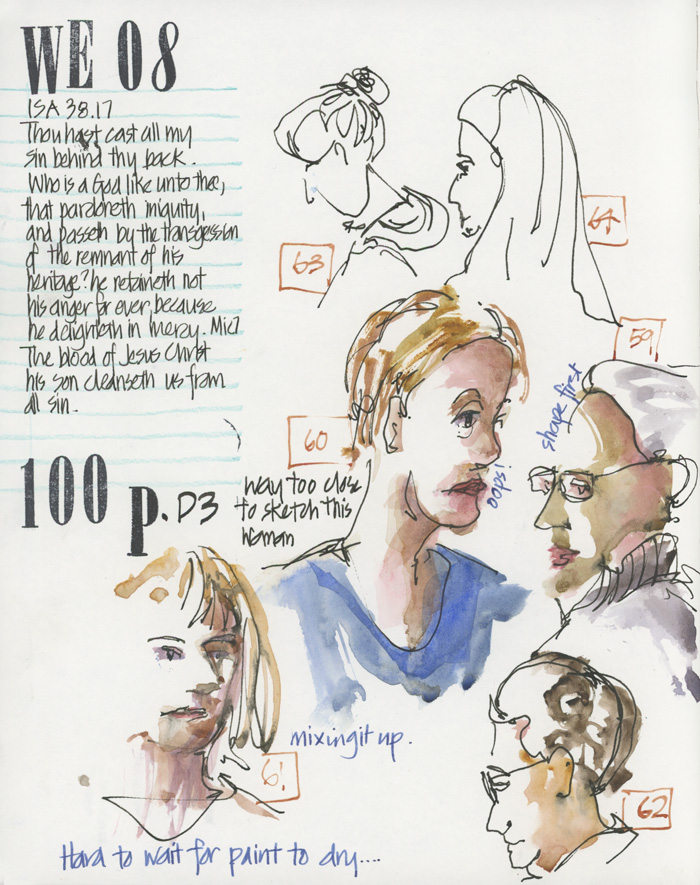 WE 08
ISA 38.17
Thou hast cast all my
sin behind thy back.
Who is a God like unto thee,
that pardoneth iniquity,
and passeth by the transgession
of the remnant of his
heritage? he retaineth not
his anger for ever, because
he delighteth in mercy. Mic7
The blood of Jesus Christ
his son cleanseth us from
all sin.
63
64
59
60
shape first
oops!
100 p. D3
way too close
to sketch this
woman
mixing it up.
61
62
Hard to wait for paint to dry....